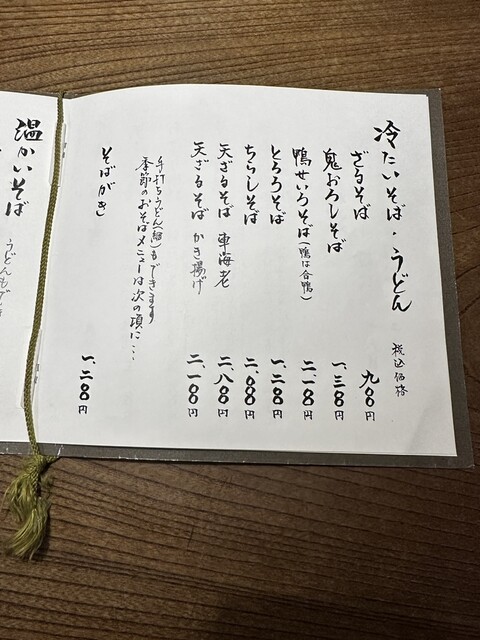 冷たいそば・うどん
税込価格
ざるそば 九〇〇円
鬼おろしそば 一、三〇〇円
鴨せいろそば(鴨は合鴨) 二、一〇〇円
とろろそば 一、二〇〇円
ちらしそば 二、〇〇〇円
天ざるそば 車海老 二、八〇〇円
天ざるそば かき揚げ 二、一〇〇円
手打ちうどん(細)もできます
季節のおそばメニューは次の項に...
そばがき 一、二〇〇円
温かいそば
うどんもでき